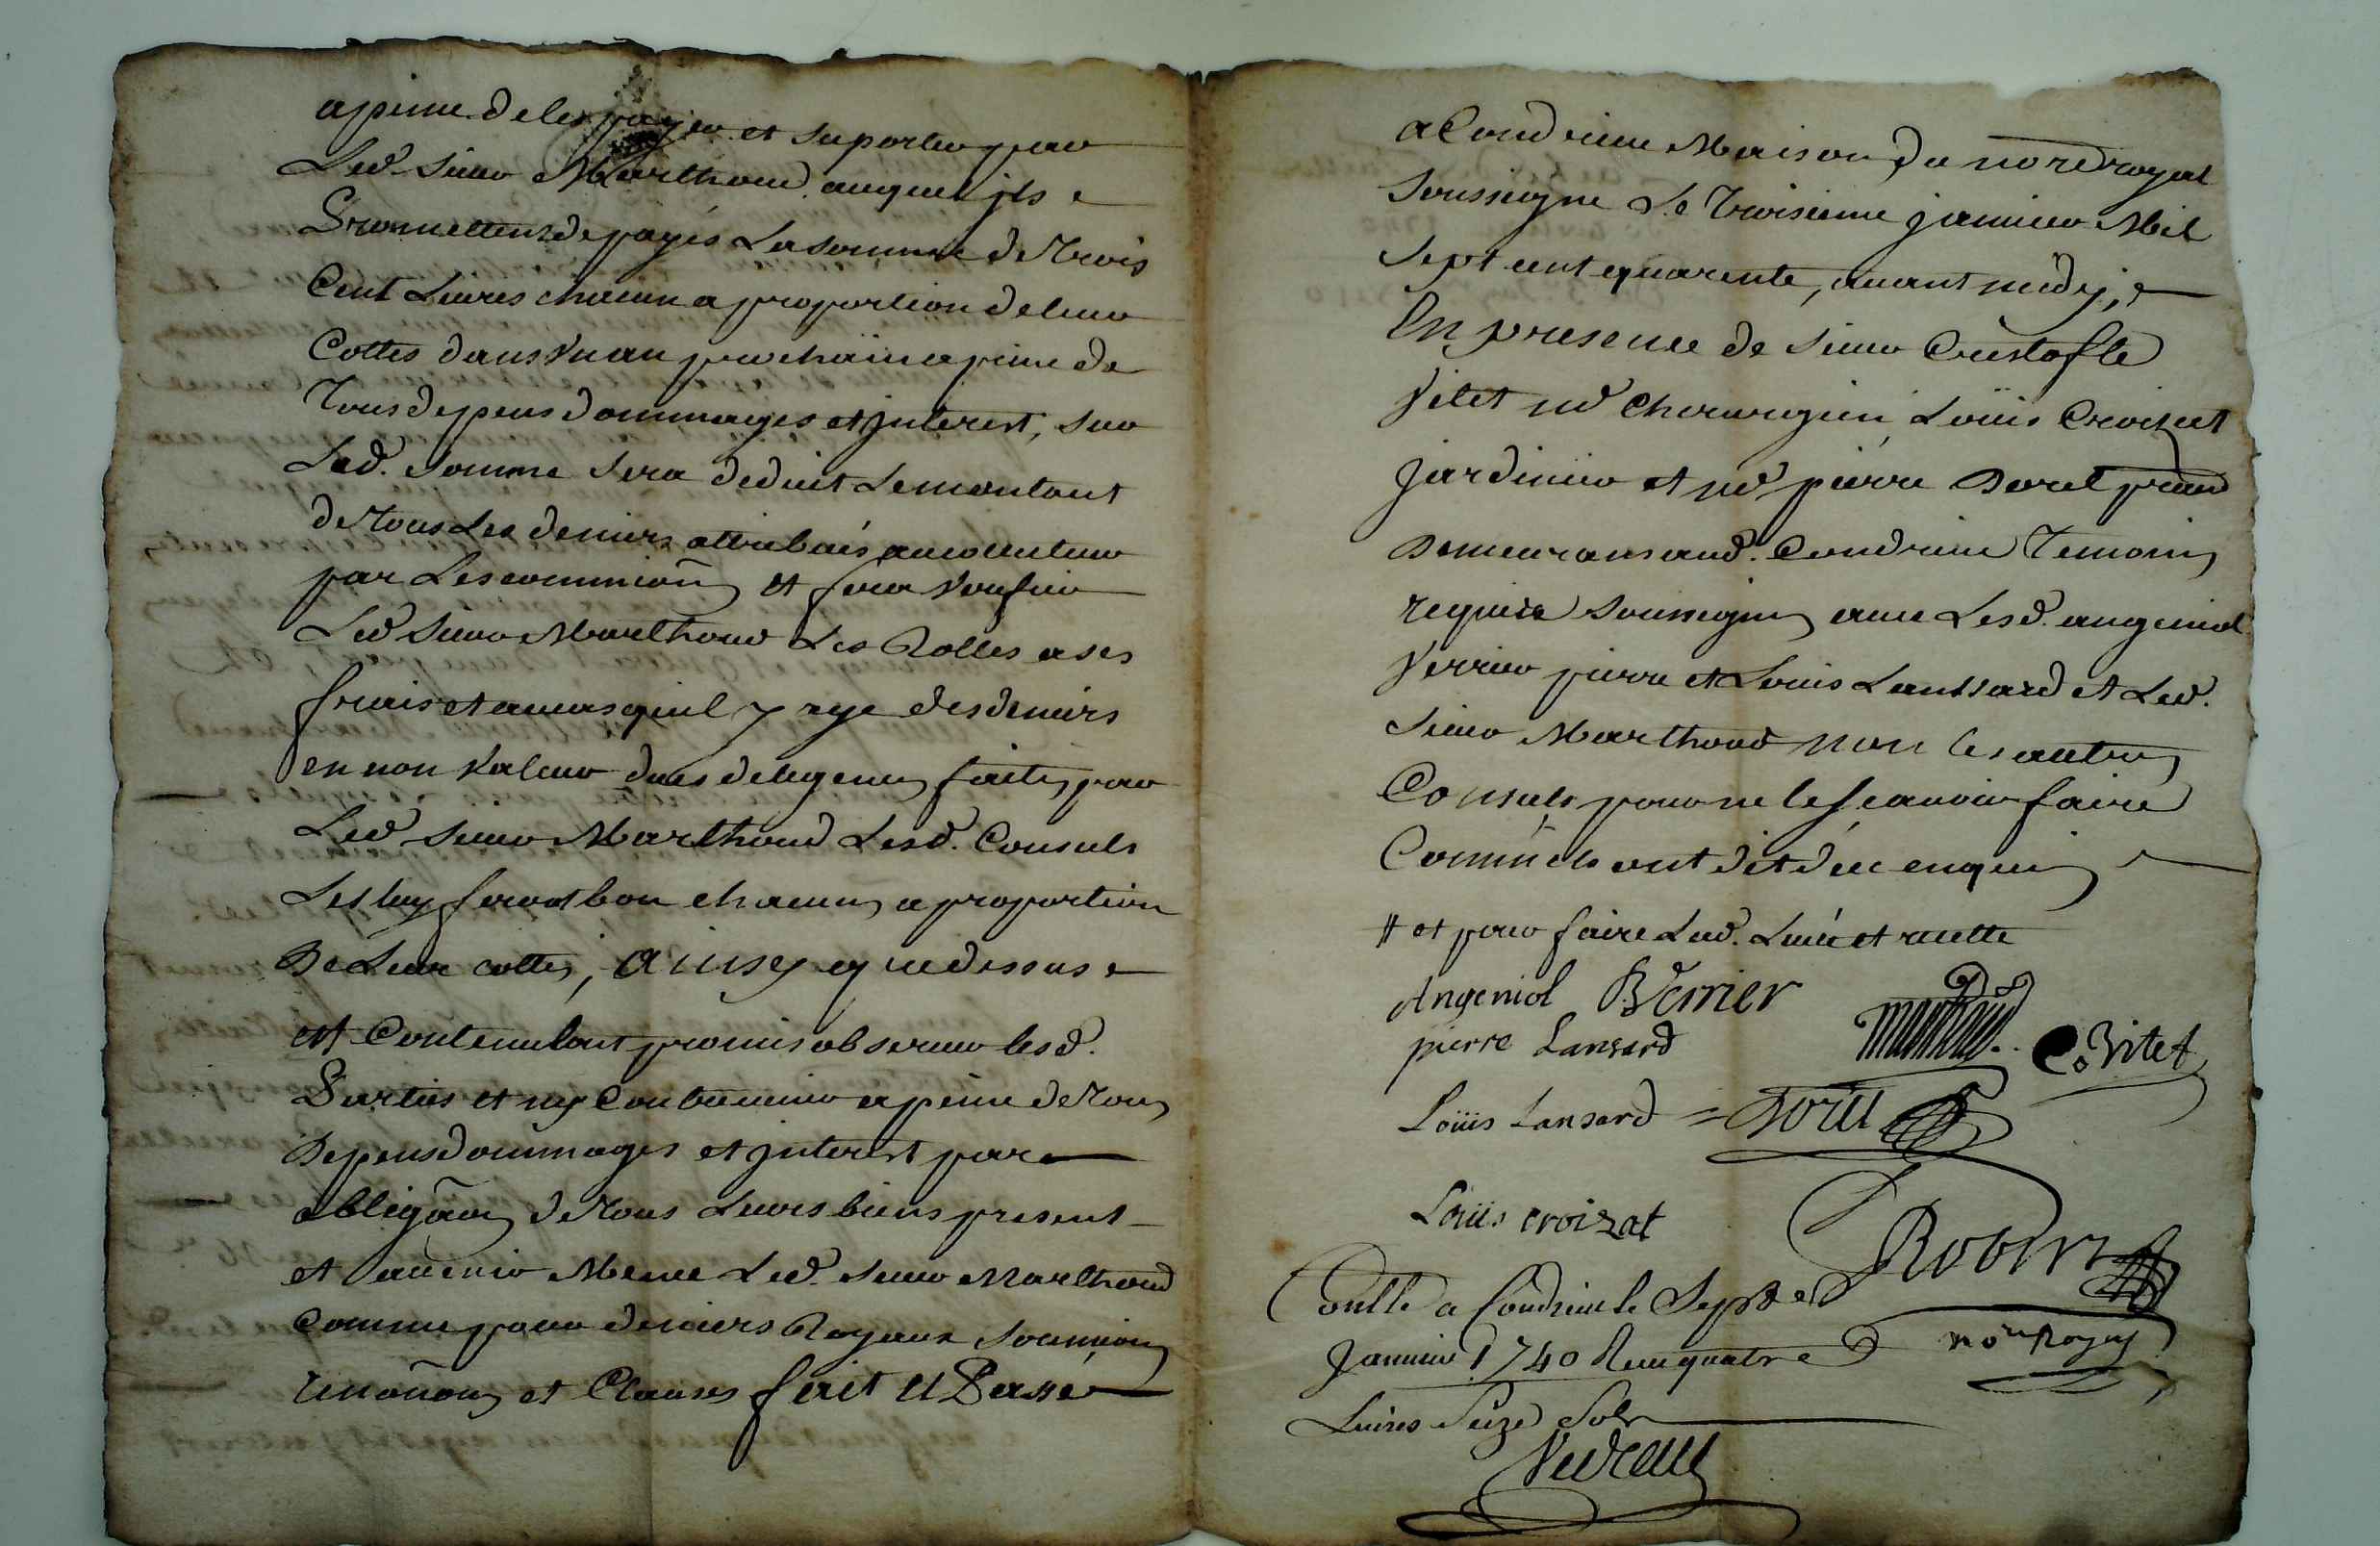 apeine de les payer et suporter par
Led. sieur Marthoud auquel ils
Promettent de payés La somme de Trois
Cent Livres chacun a proportion de leur
Cottes dans Vn an prochain a peine de
Tous depens dommages et jnterest, sur
Lad. somme sera deduit Le montant
de Tous Les deniers attribués au collecteur
par Les commion et fera Verifier
Led sieur Marthoud Les Rolles a ses
frais et au cas quil y aye des deniers
en non Valeur dues deligences faites par
Led sieur Marthoud Lesd. Consuls
Les luy feront bon chacun a proportion
De Leur cottes, ainsy que dessus
est Contenu lont promis observer lesd.
Parties et ny Contrevenir a peine de Tous
Depens dommages et jnterest par
obligaon de Tous Leurs biens present
et avenir Mesme Led. sieur Marthoud
Comme pour deniers Royaux soumion
renonon et Clauses fait et Passé
a Condrieu Maison du nore royal
soussigne Le Troisieme janvier Mil
sept cent quarente, avant midy,
En presence de sieur Cristofle
Vitet md Chirurgien, Loüis Croizat
jardinier et md pierre Borel
Demeurans aud. Condrieu Temoins
requis soussignes avec Lesd. angeniol
Verrier pierre et Louis Lanssard et Led.
sieur Marthoud non les autres
Consuls pour ne le scavoir faire
Comme ils ont dit de ce enquis
# et pour faire Lad. Levée et recette
Angeniol B Verrier
pierre Lansard marthoud C. Vitet
Loüis Lansard = Borel
Loüis croizat
Robin
nore Royal
Conllé a Condrieu le Sept
Janvier 1740 Reçu quatre
Livres Seize Sols